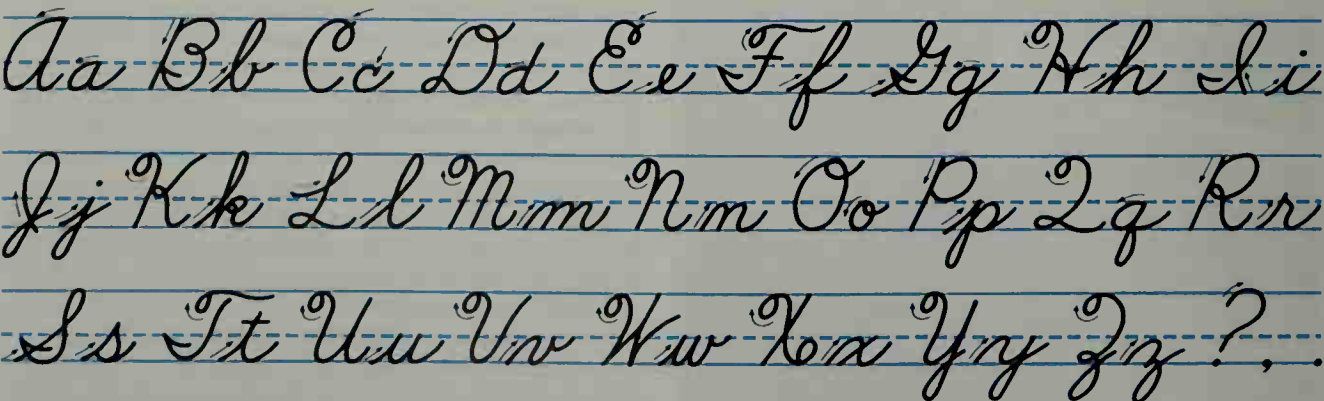 Aa Bb Cc Dd Ee Ff Gg Hh Ii
Jj Kk Ll Mm Nn Oo Pp Qq Rr
Ss Tt Uu Vv Ww Xx Yy Zz ? , .